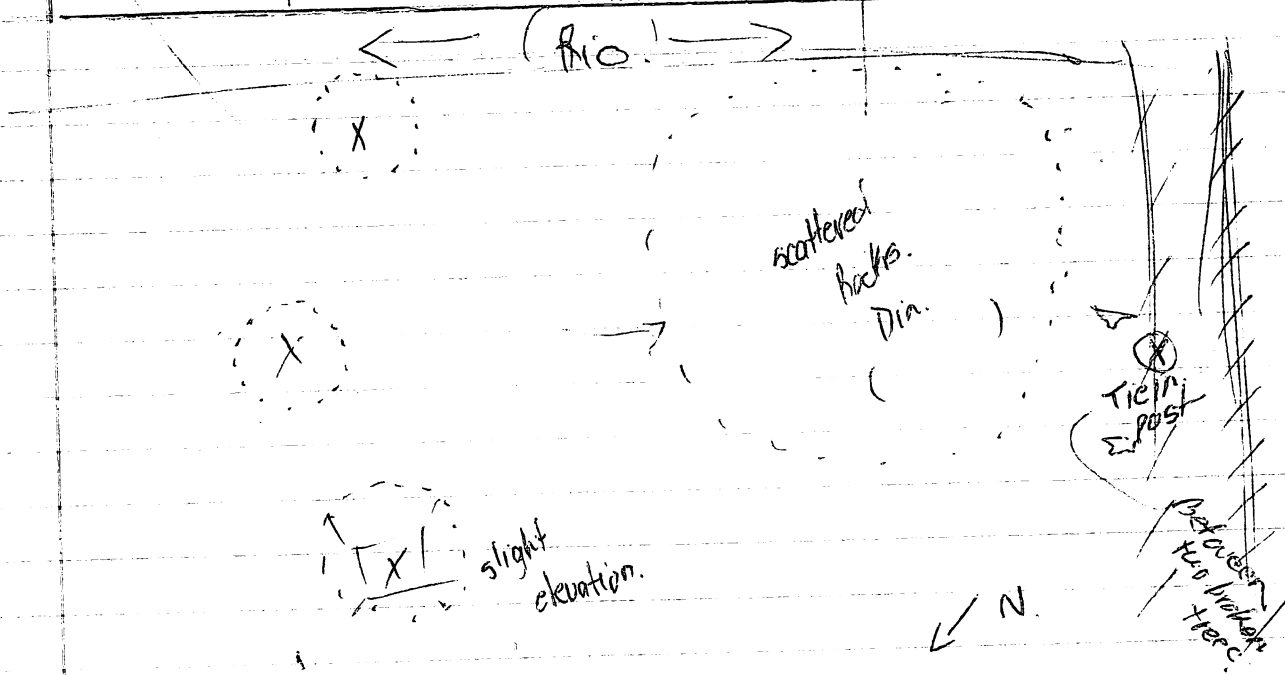 (Rio!
X
scattered
Rocks.
Dia.
( )
X
X
Tie in
post
X
slight
elevation.
Between
two broken
trees.
N.